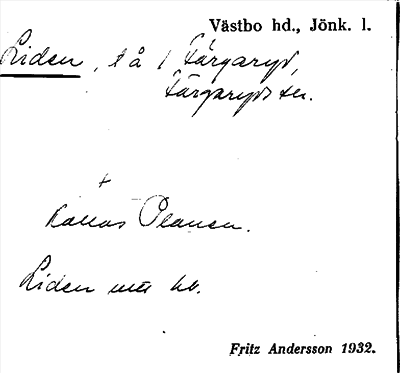 Västbo hd., Jönk. l.
Liden, t å / Färgaryd,
Färgaryds sn.
+
Kallas Planen.
Liden
Fritz Andersson 1932.